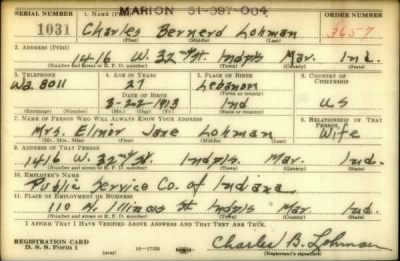 MARION 51-097-004
SERIAL NUMBER 1. NAME (Print) ORDER NUMBER
1031 Charles Bernerd Lohman 3657
(First) (Middle) (Last)
2. ADDRESS (Print)
1416 W. 32nd St. Indpls Mar. Ind.
(Number and street or R. F. D. number) (Town) (County) (State)
3. TELEPHONE 4. AGE IN YEARS 5. PLACE OF BIRTH 6. COUNTRY OF CITIZENSHIP
Wa. 8011 27 Lebanon
DATE OF BIRTH (Town or county)
3-22-1913 Ind US
(Exchange) (Number) (Mo.) (Day) (Yr.) (State or country)
7. NAME OF PERSON WHO WILL ALWAYS KNOW YOUR ADDRESS 8. RELATIONSHIP OF THAT PERSON
Mrs. Elinor Jane Lohman Wife
(Mr., Mrs., Miss) (First) (Middle) (Last)
9. ADDRESS OF THAT PERSON
1416 W. 32nd St. Indpls. Mar. Ind.
(Number and street or R. F. D. number) (Town) (County) (State)
10. EMPLOYER'S NAME
Public Service Co. of Indiana
11. PLACE OF EMPLOYMENT OR BUSINESS
110 N. Illinois St Indpls Mar. Ind.
(Number and street or R. F. D. number) (Town) (County) (State)
I AFFIRM THAT I HAVE VERIFIED ABOVE ANSWERS AND THAT THEY ARE TRUE.
REGISTRATION CARD
D. S. S. Form 1 16-17105 Charles B. Lohman
(Registrant's signature)